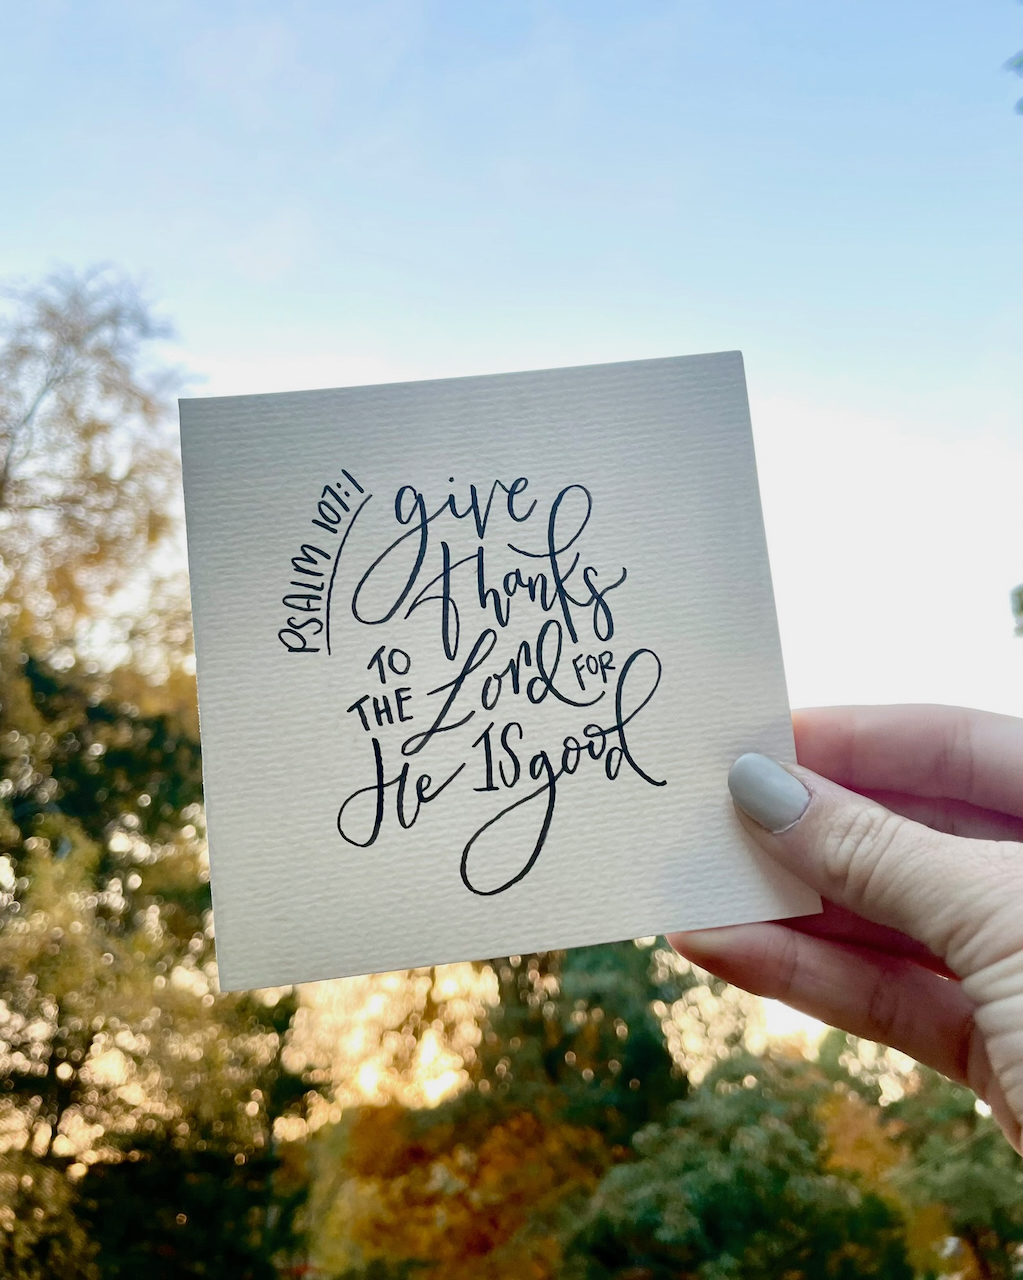 PSALM 107:1
give
thanks
TO
THE Lord FOR
He IS good